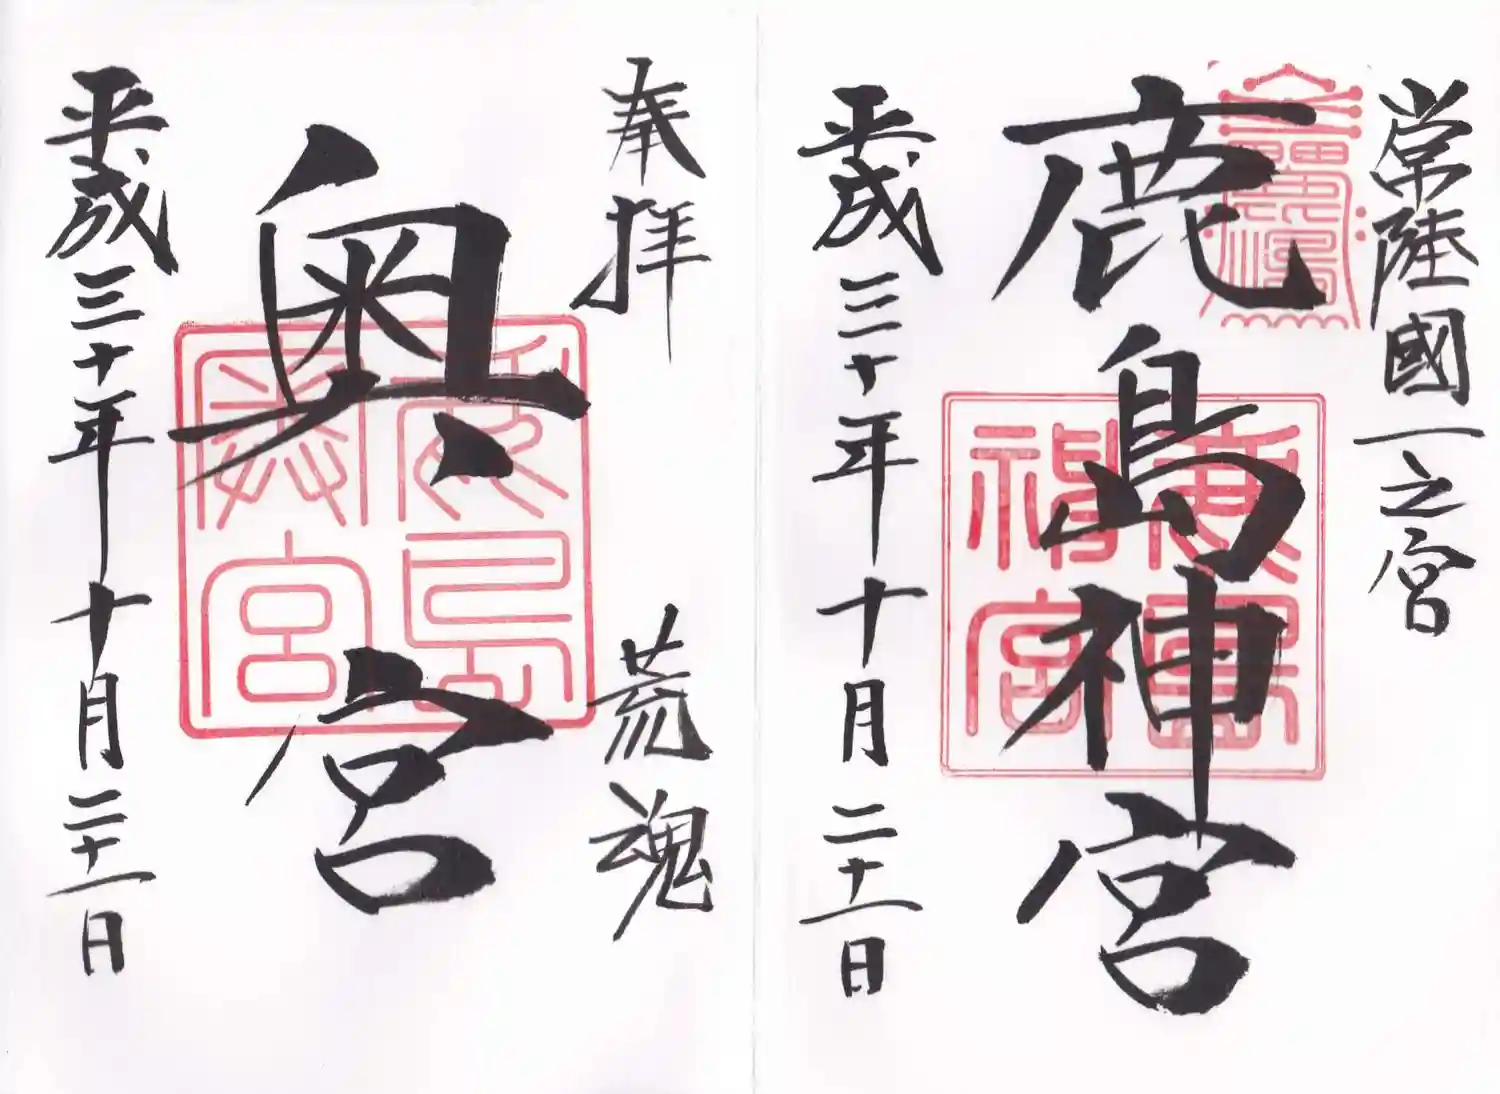 常陸國一之宮
鹿島神宮
平成三十年十月二十一日
奉拝
荒魂
奥宮
平成三十年十月二十一日
鹿島神宮
鹿島奥宮